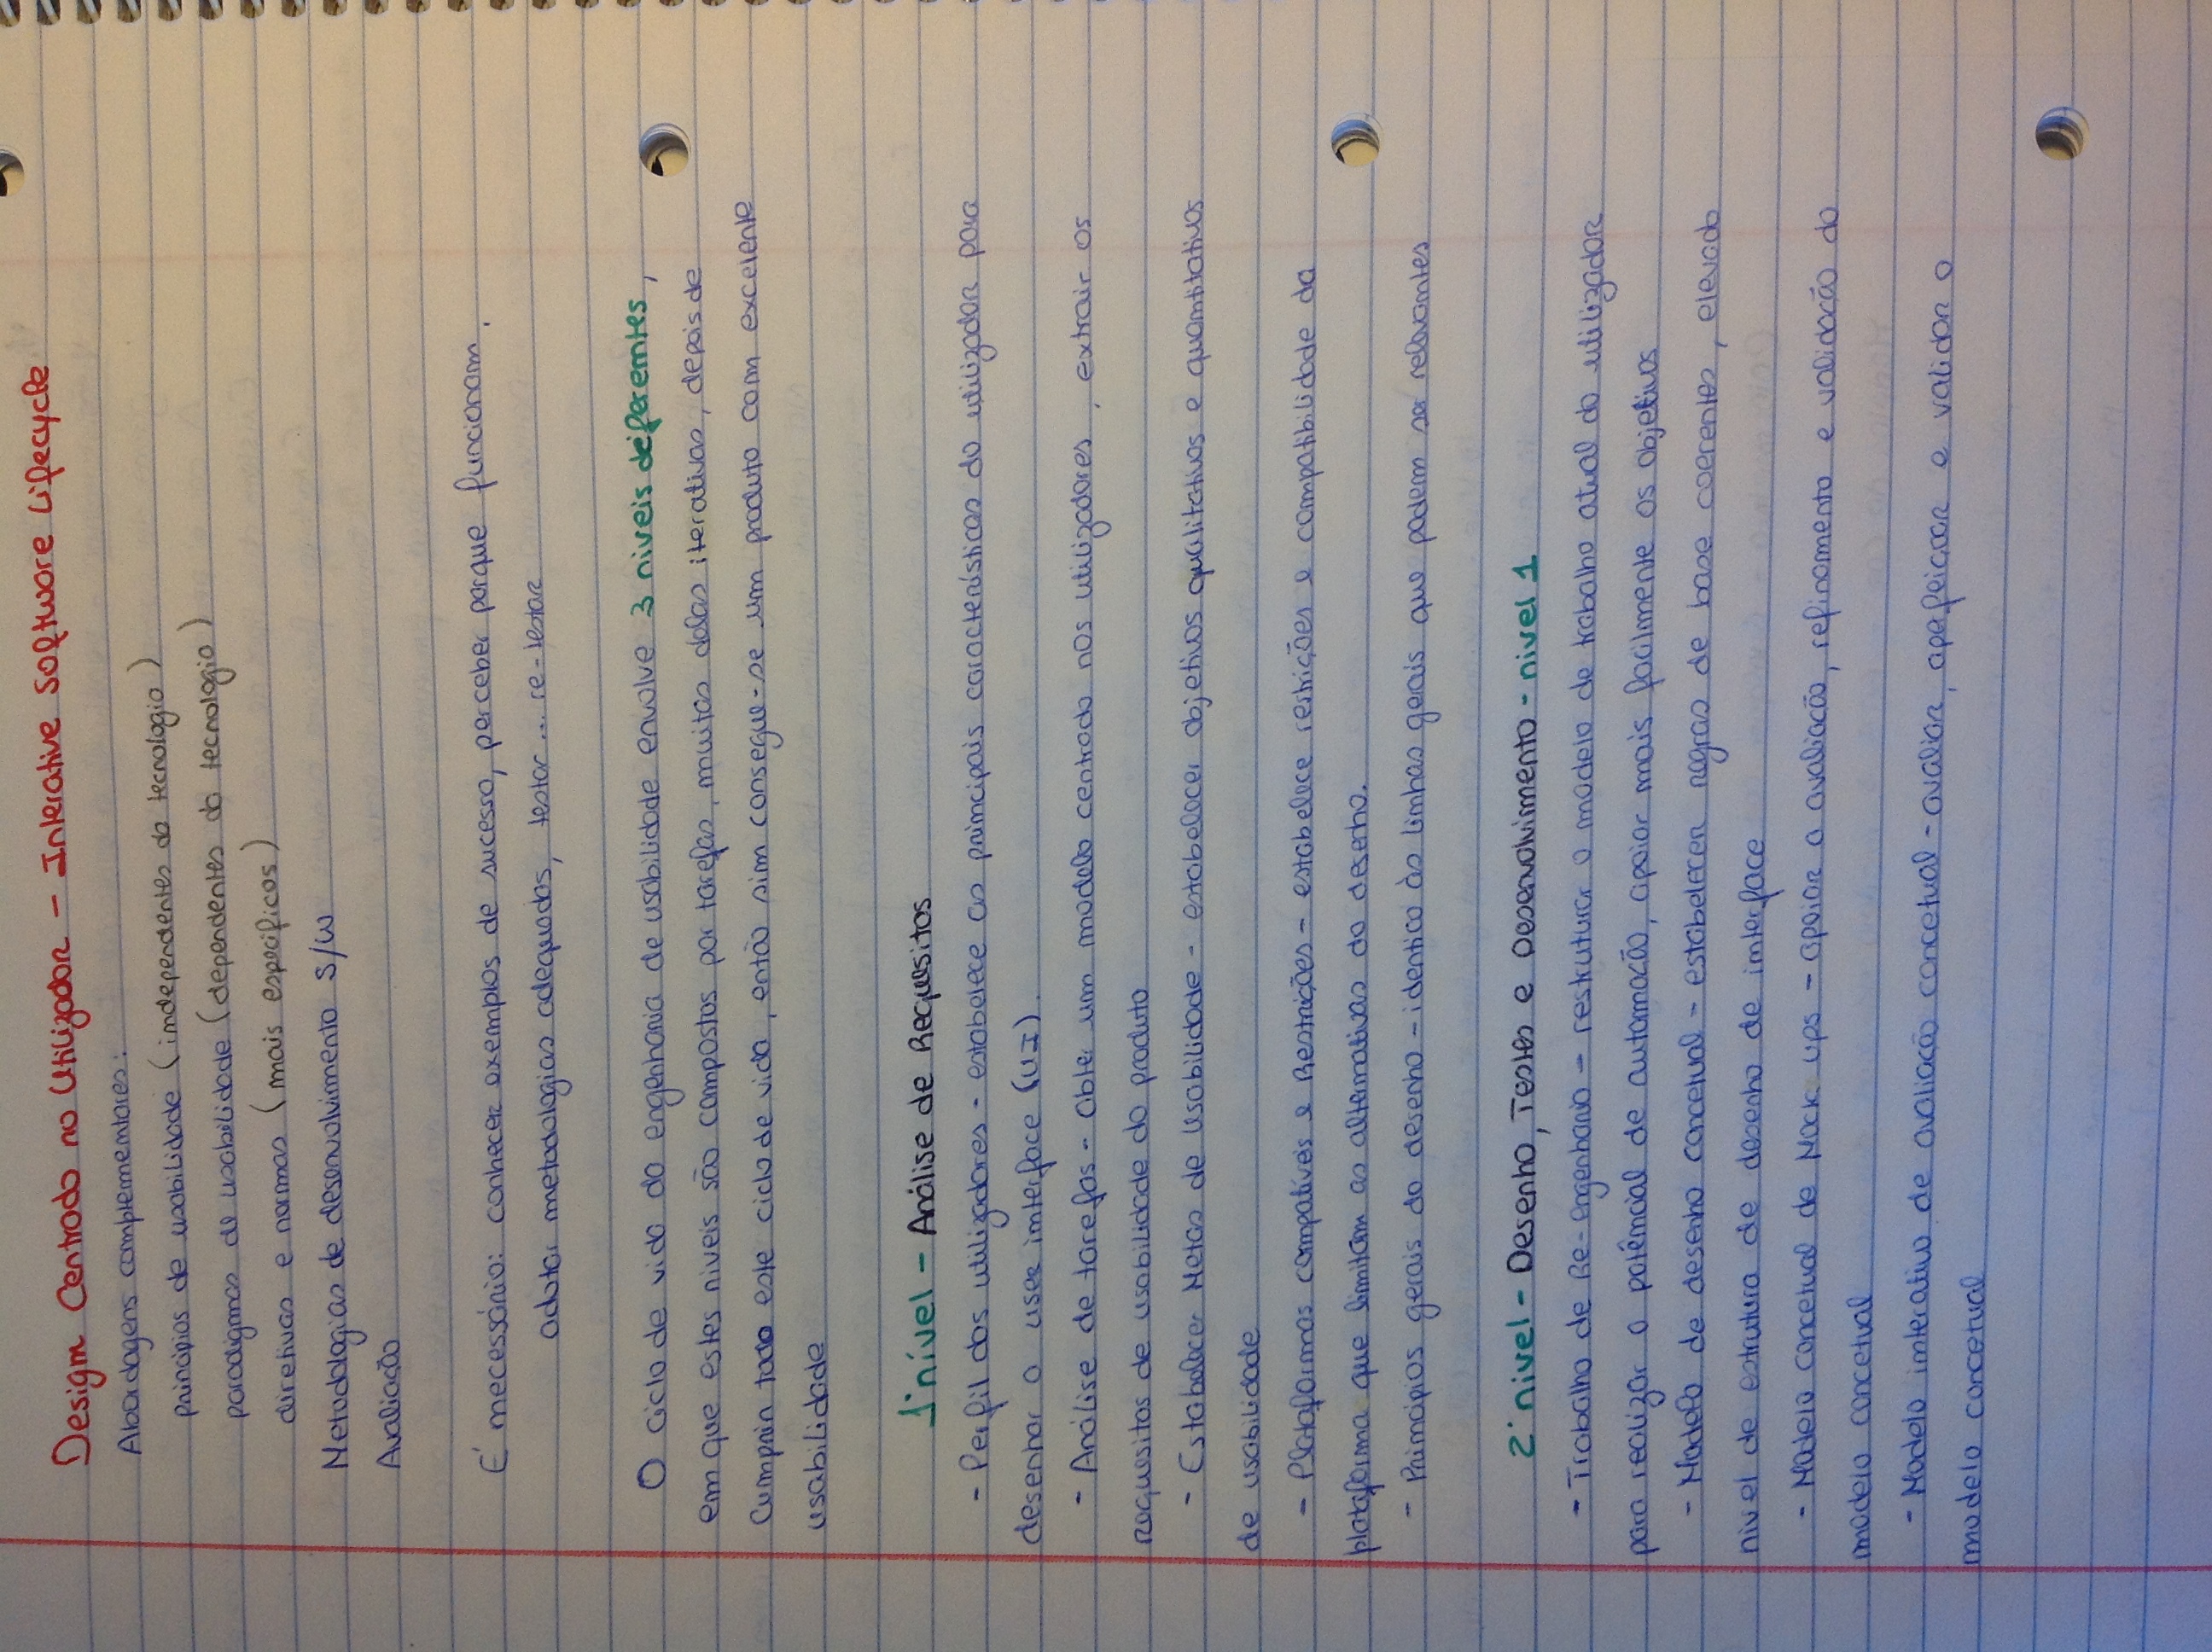 Design Centrado no Utilizador - Interative Software Lifecycle
Abordagens complementares:
principios de usabilidade (independentes da tecnologia)
paradigmas de usabilidade (dependentes da tecnologia)
diretivas e normas (mais especificos)
Metodologias de desenvolvimento S/W
Avaliação
É necessário: conhecer exemplos de sucesso, perceber porque funcionam,
adotar metodologias adequadas, testar... re-testar
O ciclo de vida da engenharia de usabilidade envolve 3 niveis diferentes,
em que estes niveis são compostos por tarefas, muitas delas iterativas, depois de
Cumprir todo este ciclo de vida, então sim consegue-se um produto com excelente
usabilidade
1º nível - Análise de Requesitos
- Perfil dos utilizadores - estabelece as principais características do utilizador para
desenhar o user interface (UI).
- Análise de tarefas - obter um modelo centrado nos utilizadores, extrair os
requesitos de usabilidade do produto
- Estabelecer Metas de Usabilidade - estabelecer objetivos qualitativos e quantitativos
de usabilidade
- Plataformas compatíveis e Restrições - estabelece restrições e compatibilidade da
plataforma que limitam as alternativas do desenho.
- Principios gerais do desenho - identico às linhas gerais que podem ser relevantes
2º nivel - Desenho, Testes e Desenvolvimento - nivel 1
- Trabalho de Re-engenharia - restruturar o modelo de trabalho atual do utilizador
para realizar o potêncial de automação, apoiar mais facilmente os objetivos
- Modelo de desenho concetual - estabelecer regras de base coerentes, elevado
nivel de estrutura de desenho de interface
- Modelo concetual de Mock ups - apoiar a avaliação, refinamento e validação do
modelo concetual
- Modelo interativo de avaliação concetual - avaliar, apefeiçoar e validar o
modelo concetual